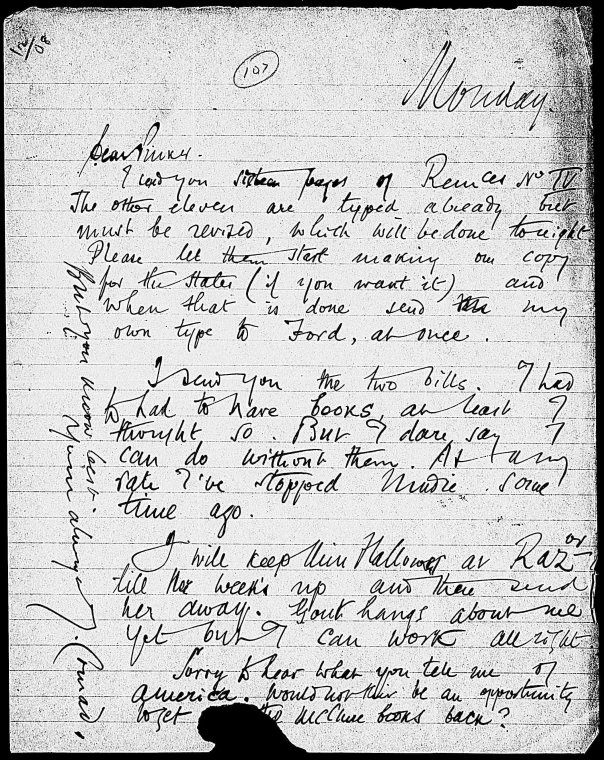 12/08
107
Monday.
Dear Pinker.
I send you sixteen pages of Remces No IV
The other eleven are typed already but
must be revised, which will be done tonight.
Please let them start making one copy
for the States (if you want it) and
when that is done send my
own type to Ford, at once.
I send you the two bills. I had
to had to have books, at least I
thought so. But I dare say I
can do without them. At any
rate I've stopped Mudie some
time ago.
I will keep Miss Hallowes at Raz or
till the week's up and then send
her away. Gout hangs about me
yet but I can work all right
Sorry to hear what you tell me of
America. Would not this be an opportunity
to get the McClure books back?
But you know best.
Yours always J. Conrad.